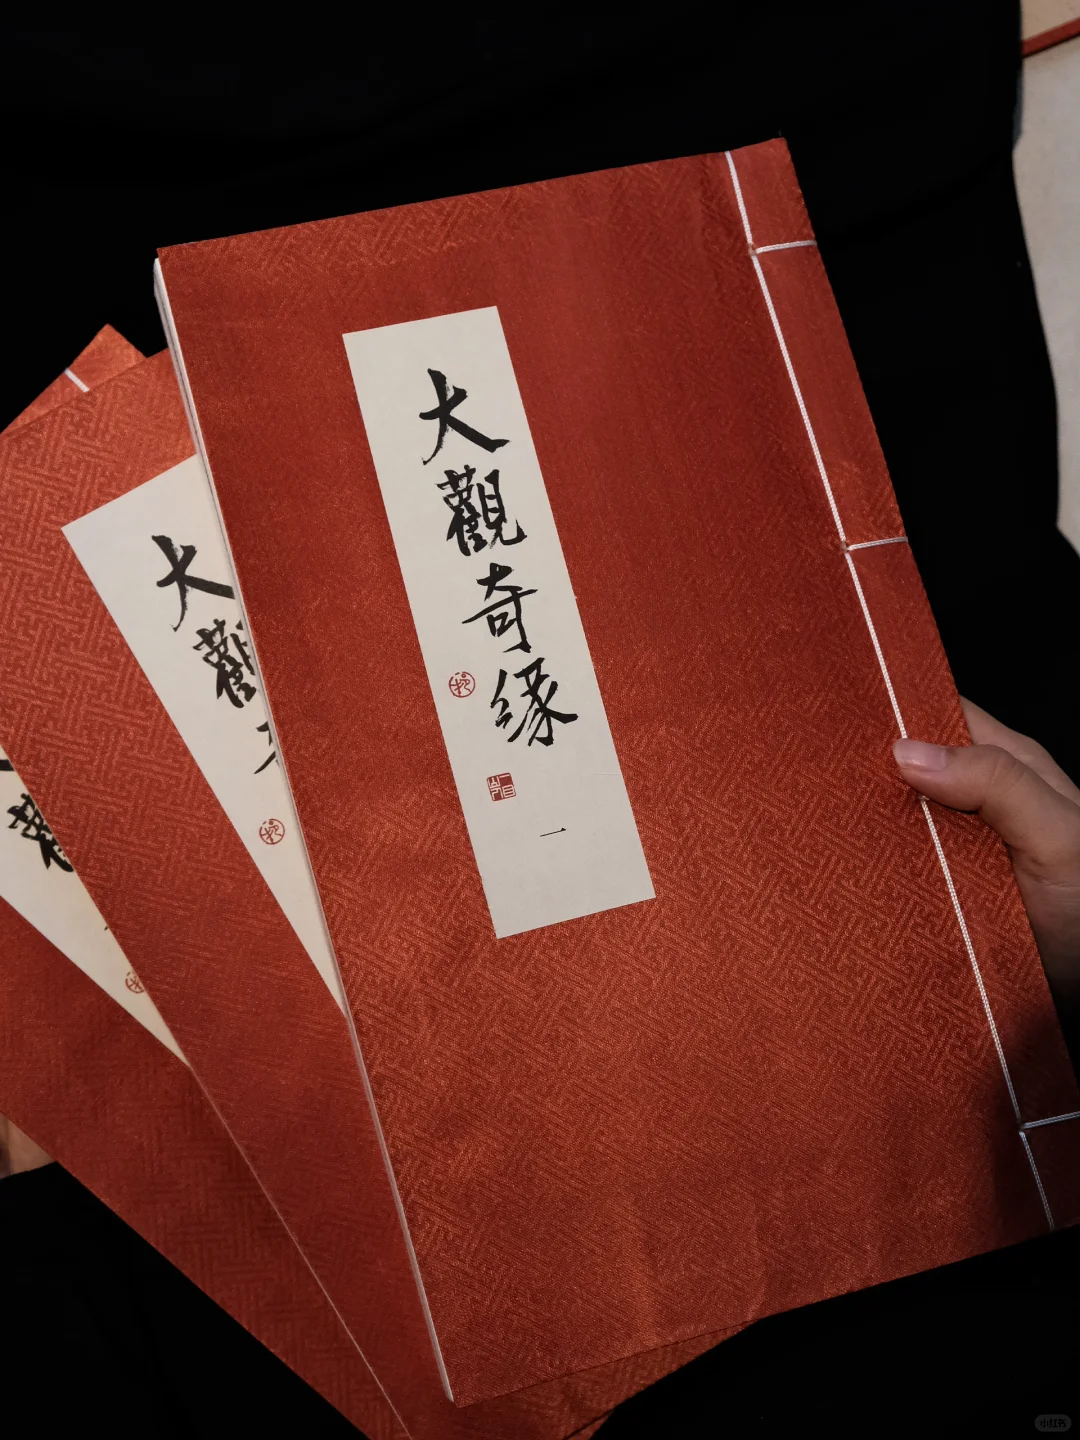 大觀奇緣
一
大觀
觀
小红书